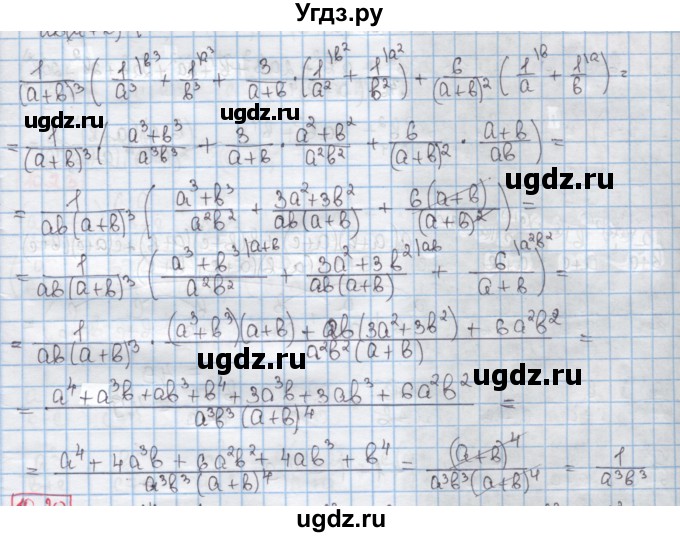 Угдз.ру
1/(a+b)³ (1/a³ \b³ + 1/b³ \a³ + 3/(a+b) · (1/a² \b² + 1/b² \a²) + 6/(a+b)² (1/a \b + 1/b \a) =
= 1/(a+b)³ ( (a³+b³)/(a³b³) + 3/(a+b) · (a²+b²)/(a²b²) + 6/(a+b)² · (a+b)/(ab) ) =
ugdz.ru
= 1/(ab(a+b)³) ( (a³+b³)/(a²b²) + (3a²+3b²)/(ab(a+b)) + 6(a+b)/(a+b)² ) =
ugdz.ru
= 1/(ab(a+b)³) ( (a³+b³)/(a²b²) \a+b + (3a²+3b²)/(ab(a+b)) \ab + 6/(a+b) \a²b² ) =
ugdz.ru
= 1/(ab(a+b)³) · ((a³+b³)(a+b) + ab(3a²+3b²) + 6a²b²)/(a²b²(a+b)) =
ugdz.ru
= (a⁴+a³b+ab³+b⁴+3a³b+3ab³+6a²b²)/(a³b³(a+b)⁴) =
ugdz.ru
= (a⁴+4a³b+6a²b²+4ab³+b⁴)/(a³b³(a+b)⁴) = (a+b)⁴/(a³b³(a+b)⁴) = 1/(a³b³)
ugdz.ru